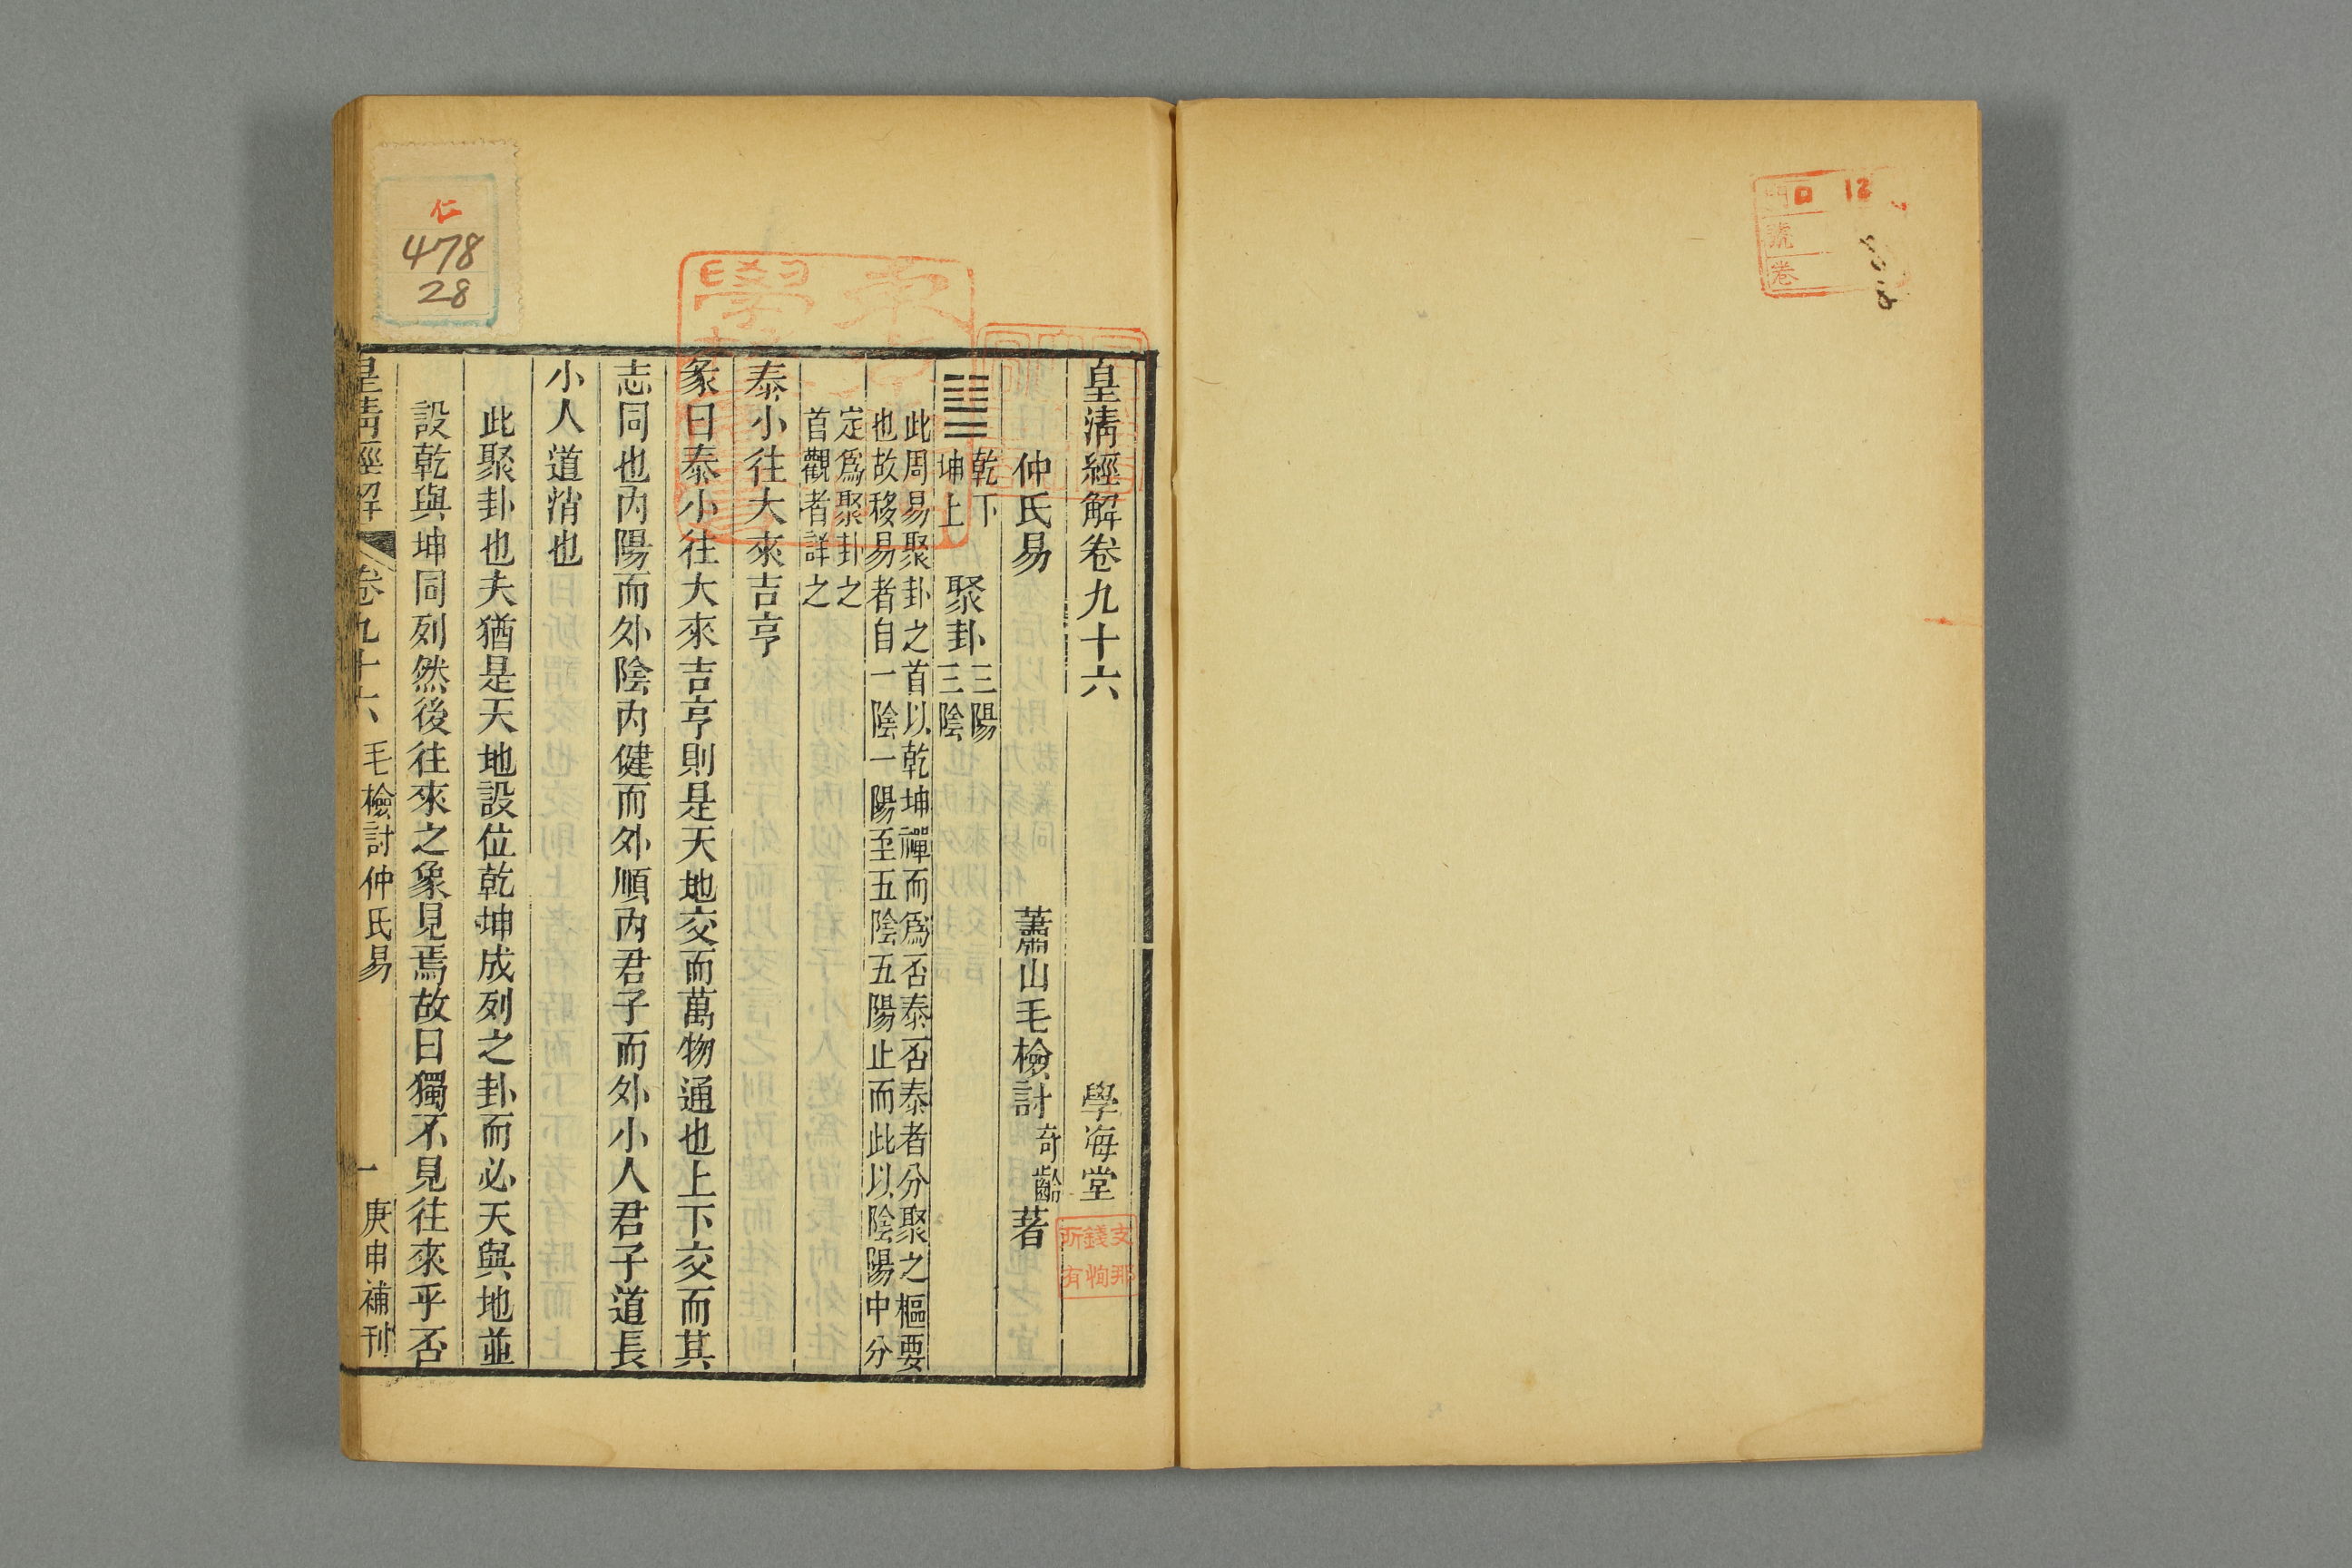 門 口 12
號
卷
皇清經解卷九十六 學海堂
仲氏易 蕭山毛檢討奇齡著
䷊乾下坤上 聚卦三陽三陰
此周易聚卦之首以乾坤禪而爲否泰否泰者分聚之樞要
也故移易者自一陰一陽至五陰五陽止而此以陰陽中分
定爲聚卦之
首觀者詳之
泰小往大來吉亨
彖曰泰小往大來吉亨則是天地交而萬物通也上下交而其
志同也內陽而外陰內健而外順內君子而外小人君子道長
小人道消也
此聚卦也夫猶是天地設位乾坤成列之卦而必天與地並
設乾與坤同列然後往來之象見焉故曰獨不見往來乎否
皇清經解 卷九十六 毛檢討仲氏易 一 庚申補刊
支那
錢恂
所有
仁
478
28